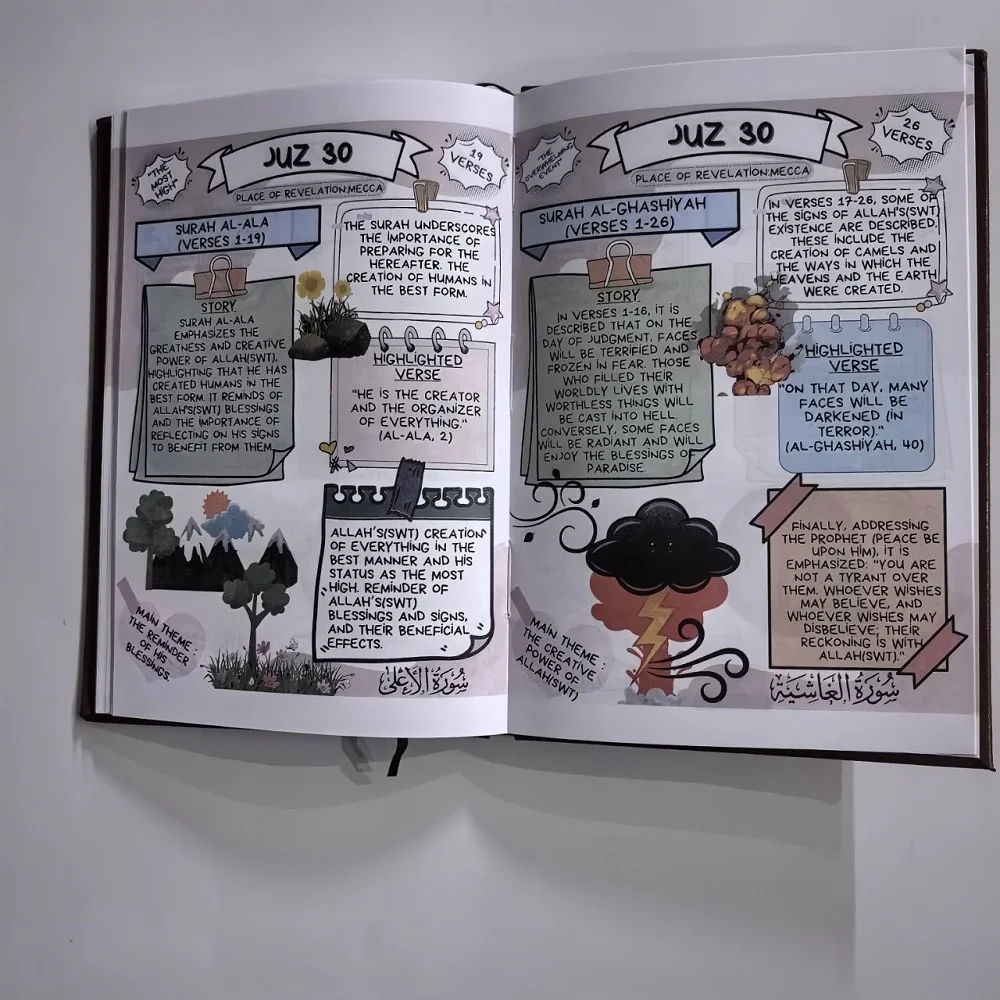 "THE
MOST
HIGH"
JUZ 30
19
VERSES
PLACE OF REVELATION:MECCA
SURAH AL-ALA
(VERSES 1-19)
THE SURAH UNDERSCORES
THE IMPORTANCE OF
PREPARING FOR THE
HEREAFTER. THE
CREATION OF HUMANS IN
THE BEST FORM.
STORY
SURAH AL-ALA
EMPHASIZES THE
GREATNESS AND CREATIVE
POWER OF ALLAH(SWT),
HIGHLIGHTING THAT HE HAS
CREATED HUMANS IN THE
BEST FORM. IT REMINDS OF
ALLAH'S(SWT) BLESSINGS
AND THE IMPORTANCE OF
REFLECTING ON HIS SIGNS
TO BENEFIT FROM THEM.
HIGHLIGHTED
VERSE
"HE IS THE CREATOR
AND THE ORGANIZER
OF EVERYTHING."
(AL-ALA, 2)
ALLAH'S(SWT) CREATION
OF EVERYTHING IN THE
BEST MANNER AND HIS
STATUS AS THE MOST
HIGH. REMINDER OF
ALLAH'S(SWT)
BLESSINGS AND SIGNS,
AND THEIR BENEFICIAL
EFFECTS.
MAIN THEME :
THE REMINDER
OF HIS
BLESSINGS.
سُورَةُ الْأَعْلَى
"THE
OVERWHELMING
EVENT"
JUZ 30
26
VERSES
PLACE OF REVELATION:MECCA
SURAH AL-GHASHIYAH
(VERSES 1-26)
IN VERSES 17-26, SOME OF
THE SIGNS OF ALLAH'S(SWT)
EXISTENCE ARE DESCRIBED.
THESE INCLUDE THE
CREATION OF CAMELS AND
THE WAYS IN WHICH THE
HEAVENS AND THE EARTH
WERE CREATED.
STORY
IN VERSES 1-16, IT IS
DESCRIBED THAT ON THE
DAY OF JUDGMENT, FACES
WILL BE TERRIFIED AND
FROZEN IN FEAR. THOSE
WHO FILLED THEIR
WORLDLY LIVES WITH
WORTHLESS THINGS WILL
BE CAST INTO HELL.
CONVERSELY, SOME FACES
WILL BE RADIANT AND WILL
ENJOY THE BLESSINGS OF
PARADISE.
HIGHLIGHTED
VERSE
"ON THAT DAY, MANY
FACES WILL BE
DARKENED (IN
TERROR)."
(AL-GHASHIYAH, 40)
FINALLY, ADDRESSING
THE PROPHET (PEACE BE
UPON HIM), IT IS
EMPHASIZED: "YOU ARE
NOT A TYRANT OVER
THEM. WHOEVER WISHES
MAY BELIEVE, AND
WHOEVER WISHES MAY
DISBELIEVE; THEIR
RECKONING IS WITH
ALLAH(SWT)."
MAIN THEME :
THE CREATIVE
POWER OF
ALLAH(SWT)
سُورَةُ الْغَاشِيَةِ